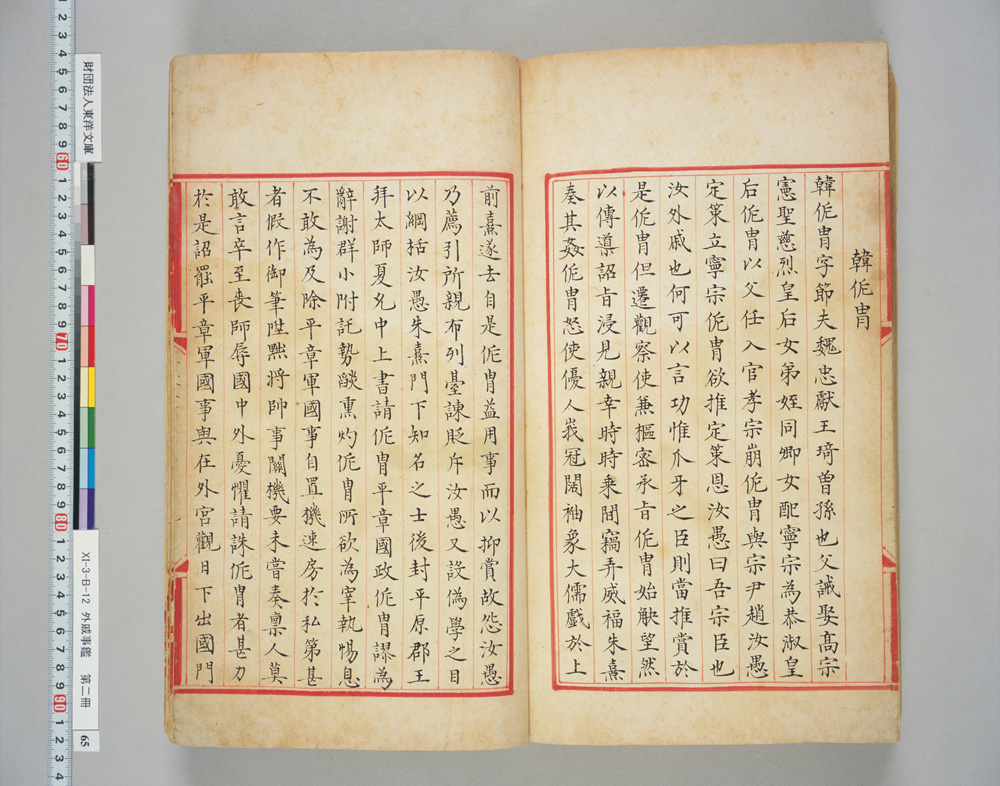 韓侂冑
韓侂冑字節夫魏忠獻王琦曾孫也父誠娶高宗
憲聖慈烈皇后女弟姪同卿女配寧宗為恭淑皇
后侂冑以父任入官孝宗崩侂冑與宗尹趙汝愚
定策立寧宗侂冑欲推定策恩汝愚曰吾宗臣也
汝外戚也何可以言功惟爪牙之臣則當推賞於
是侂冑但遷觀察使兼樞密承旨侂冑始觖望然
以傳導詔旨浸見親幸時時乗間竊弄威福朱熹
奏其姦侂冑怒使優人峩冠闊袖象大儒戲於上
前熹遂去自是侂冑益用事而以抑賞故怨汝愚
乃薦引所親布列臺諫貶斥汝愚又設偽學之目
以綱括汝愚朱熹門下知名之士後封平原郡王
拜太師夏允中上書請侂冑平章國政侂冑謬為
辭謝群小附託勢燄熏灼侂冑所欲為宰執惕息
不敢為及除平章軍國事自置機速房於私第甚
者假作御筆陞黜將帥事關機要未嘗奏禀人莫
敢言卒至喪師辱國中外憂懼請誅侂冑者甚力
於是詔罷平章軍國事與在外宮觀日下出國門
財団法人東洋文庫
XI-3-B-12 外戚事鑑 第二冊
65